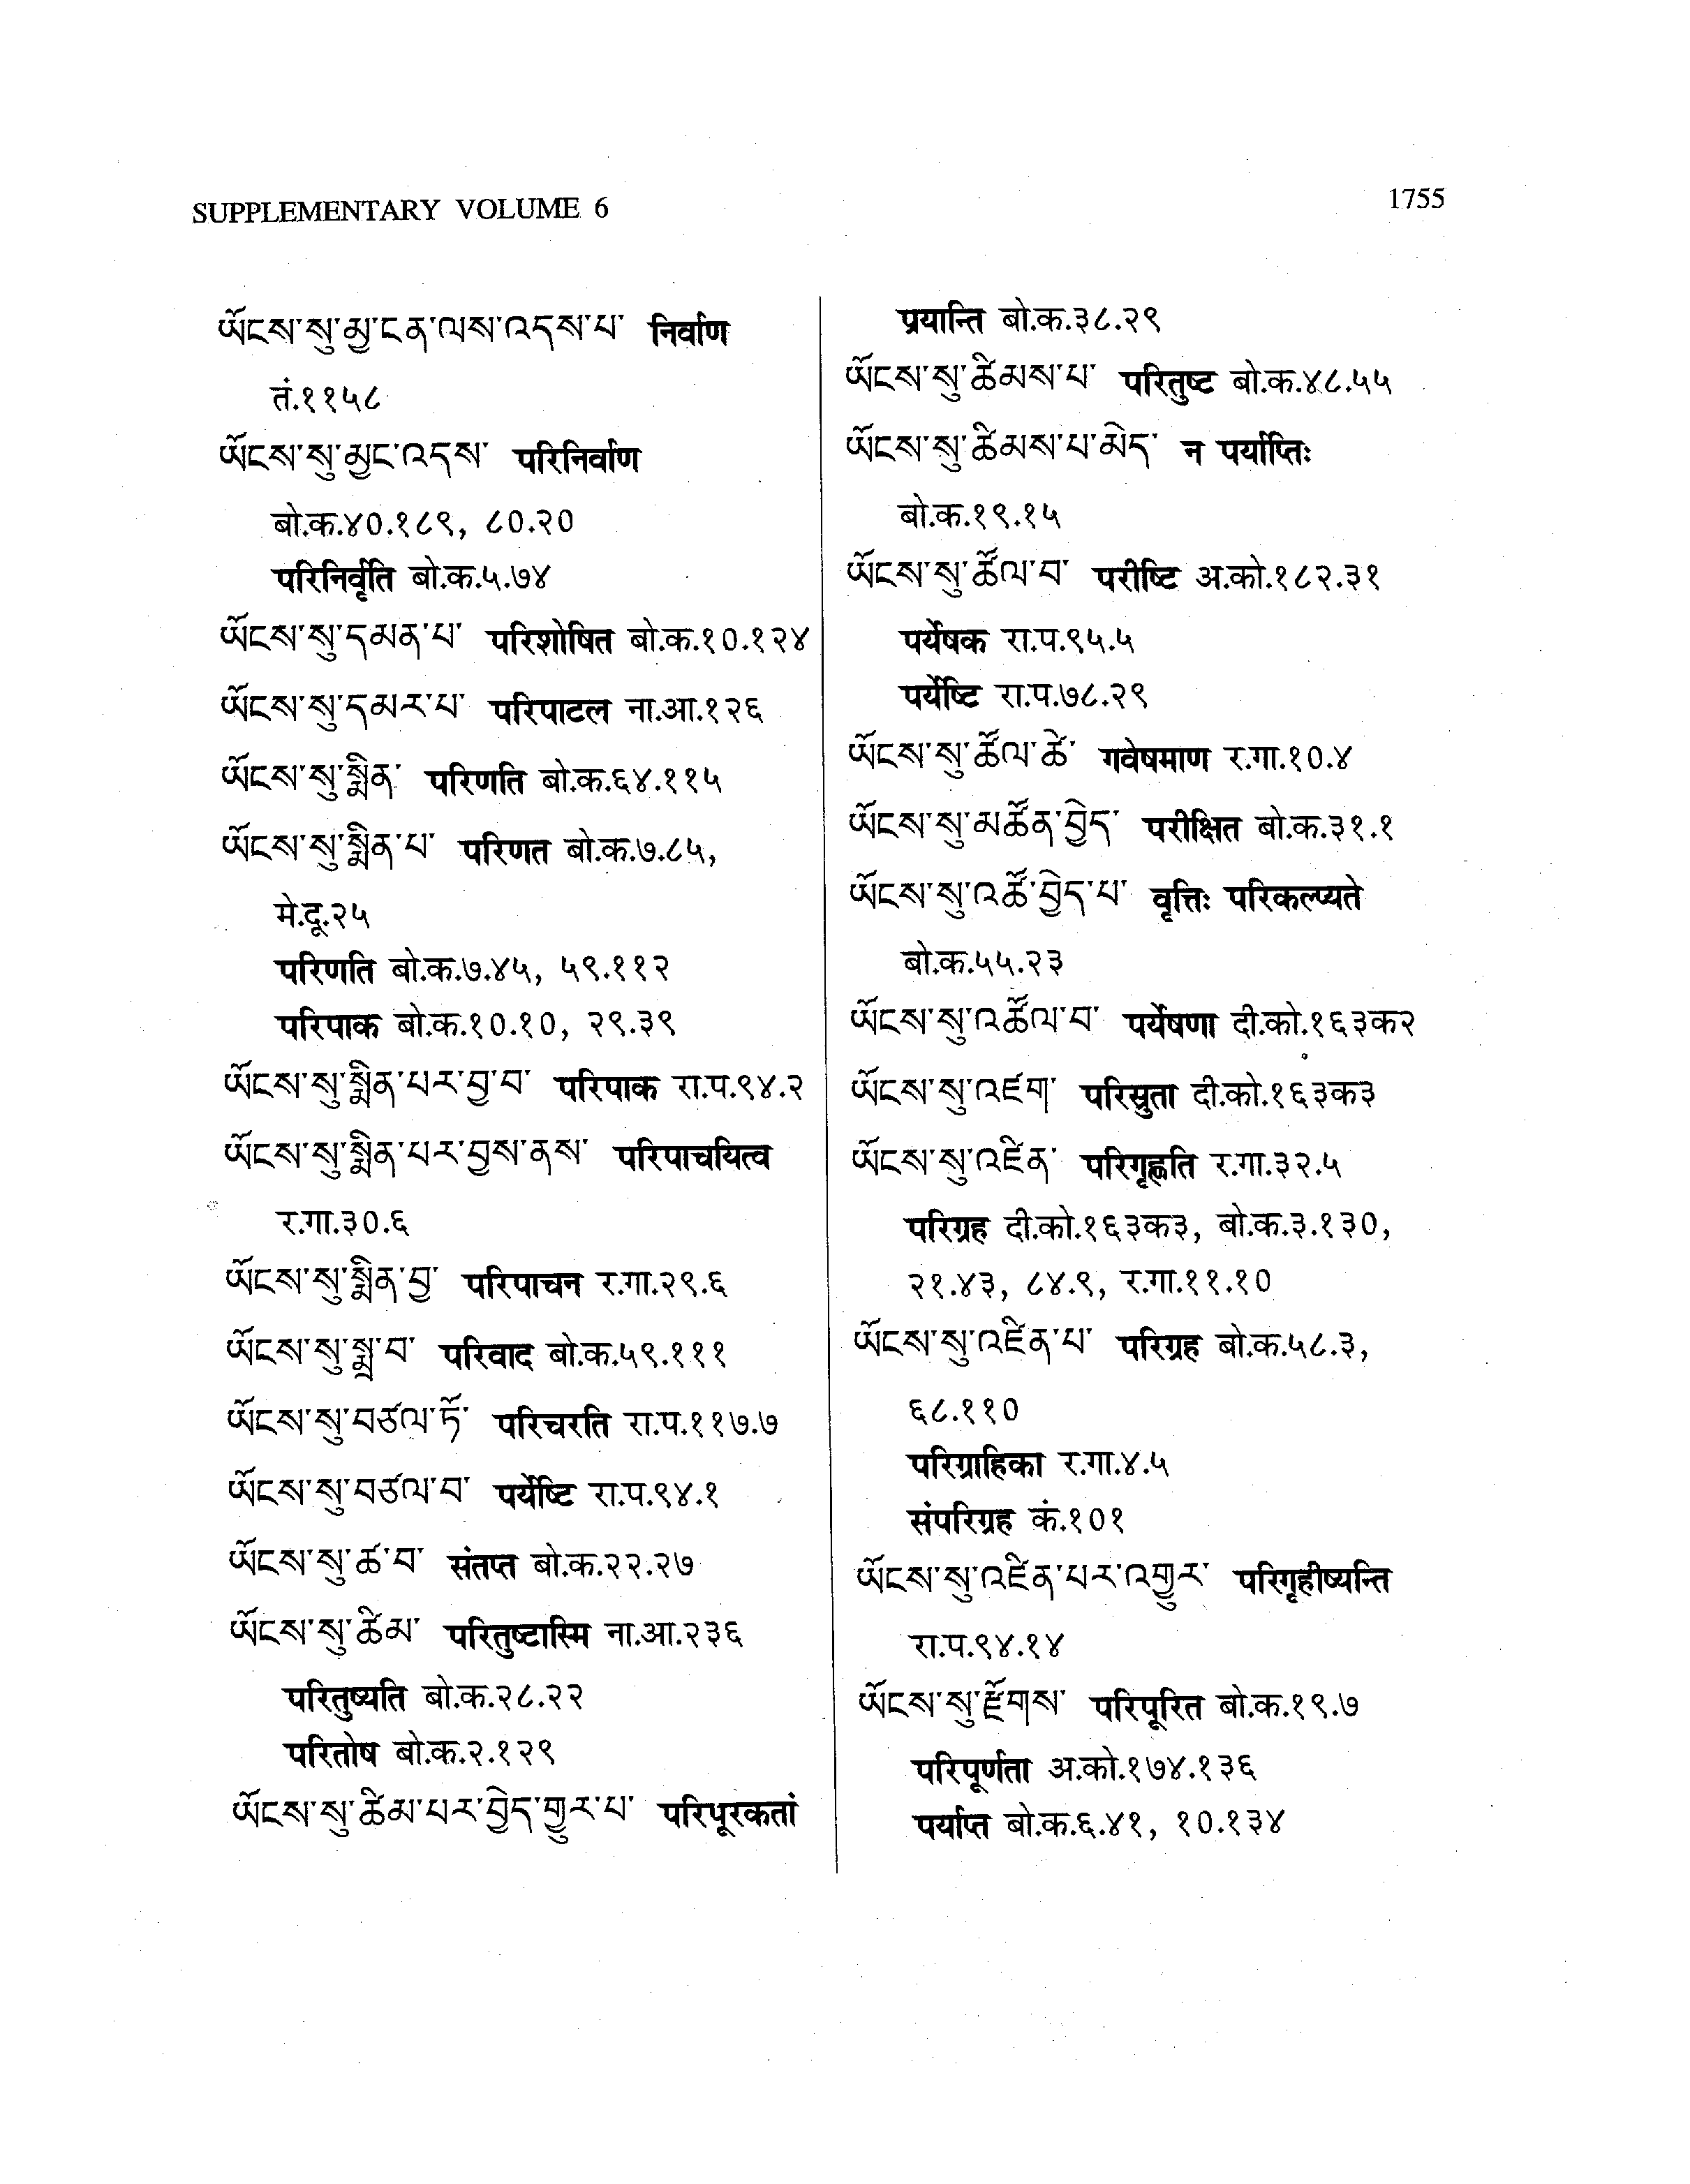 SUPPLEMENTARY VOLUME 6
1755
ཡོངས་སུ་མྱ་ངན་ལས་འདས་པ་ निर्वाण
तं.११५८
ཡོངས་སུ་མྱང་འདས་ परिनिर्वाण
बो.क.४०.१८९, ८०.२०
परिनिर्वृति बो.क.५.७४
ཡོངས་སུ་དམན་པ་ परिशोषित बो.क.१०.१२४
ཡོངས་སུ་དམར་པ་ परिपाटल ना.आ.१२६
ཡོངས་སུ་སྨིན་ परिणति बो.क.६४.११५
ཡོངས་སུ་སྨིན་པ་ परिणत बो.क.७.८५,
मे.दू.२५
परिणति बो.क.७.४५, ५९.११२
परिपाक बो.क.१०.१०, २९.३९
ཡོངས་སུ་སྨིན་པར་བྱ་བ་ परिपाक रा.प.९४.२
ཡོངས་སུ་སྨིན་པར་བྱས་ནས་ परिपाचयित्व
र.गा.३०.६
ཡོངས་སུ་སྨིན་བྱ་ परिपाचन र.गा.२९.६
ཡོངས་སུ་སྨྲ་བ་ परिवाद बो.क.५९.१११
ཡོངས་སུ་བཙལ་ཏོ་ परिचरति रा.प.११७.७
ཡོངས་སུ་བཙལ་བ་ पर्येष्टि रा.प.९४.१
ཡོངས་སུ་ཚ་བ་ संतप्त बो.क.२२.२७
ཡོངས་སུ་ཚིམ་ परितुष्टास्मि ना.आ.२३६
परितुष्यति बो.क.२८.२२
परितोष बो.क.२.१२९
ཡོངས་སུ་ཚིམ་པར་བྱེད་གྱུར་པ་ परिपूरकतां
प्रयान्ति बो.क.३८.२९
ཡོངས་སུ་ཚིམས་པ་ परितुष्ट बो.क.४८.५५
ཡོངས་སུ་ཚིམས་པ་མེད་ न पर्याप्तिः
बो.क.१९.१५
ཡོངས་སུ་ཚོལ་བ་ परीष्टि अ.को.१८२.३१
पर्येषक रा.प.९५.५
पर्येष्टि रा.प.७८.२९
ཡོངས་སུ་ཚོལ་ཚེ་ गवेषमाण र.गा.१०.४
ཡོངས་སུ་མཚོན་བྱེད་ परीक्षित बो.क.३१.१
ཡོངས་སུ་འཚོ་བྱེད་པ་ वृत्तिः परिकल्प्यते
बो.क.५५.२३
ཡོངས་སུ་འཚོལ་བ་ पर्येषणा दी.को.१६३क२
ཡོངས་སུ་འཛག་ परिस्रुता दी.को.१६३क३
ཡོངས་སུ་འཛིན་ परिगृह्णति र.गा.३२.५
परिग्रह दी.को.१६३क३, बो.क.३.१३०,
२१.४३, ८४.९, र.गा.११.१०
ཡོངས་སུ་འཛིན་པ་ परिग्रह बो.क.५८.३,
६८.११०
परिग्राहिका र.गा.४.५
संपरिग्रह कं.१०१
ཡོངས་སུ་འཛིན་པར་འགྱུར་ परिगृहीष्यन्ति
रा.प.९४.१४
ཡོངས་སུ་རྫོགས་ परिपूरित बो.क.१९.७
परिपूर्णता अ.को.१७४.१३६
पर्याप्त बो.क.६.४१, १०.१३४